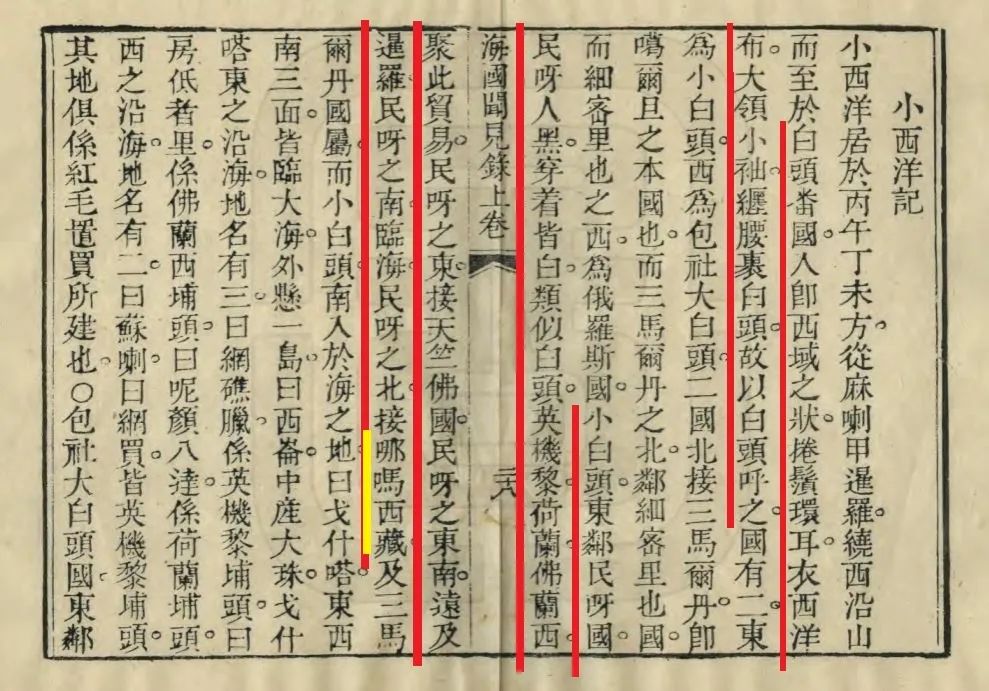 小西洋記
小西洋居於丙午丁未方。從麻喇甲暹羅。繞西沿山
而至於白頭番國。人卽西域之狀。捲鬚環耳。衣西洋
布。大領小袖。纏腰裹白頭。故以白頭呼之。國有二。東
為小白頭。西為包社大白頭。二國北接三馬爾丹。卽
噶爾旦之本國也。而三馬爾丹之北。鄰細密里也。國
而細密里也之西。為俄羅斯國。小白頭東鄰民呀國。
民呀人黑。穿着皆白。類似白頭。英機黎。荷蘭。佛蘭西。
海國聞見錄上卷 二十八
聚此貿易。民呀之東。接天竺佛國。民呀之東南。遠及
暹羅。民呀之南臨海。民呀之北。接哪嗎西藏。及三馬
爾丹國屬。而小白頭南入於海之地。曰戈什嗒。東西
南三面皆臨大海。海外懸一島。曰西崙。中產大珠。戈什
嗒東之沿海。地名有三。曰網礁臘。係英機黎埔頭。曰
房低者里。係佛蘭西埔頭。曰呢顏八達。係荷蘭埔頭。
西之沿海。地名有二。曰蘇喇。曰網買。皆英機黎埔頭。
其地俱係紅毛置買所建也。○包社大白頭國。東鄰